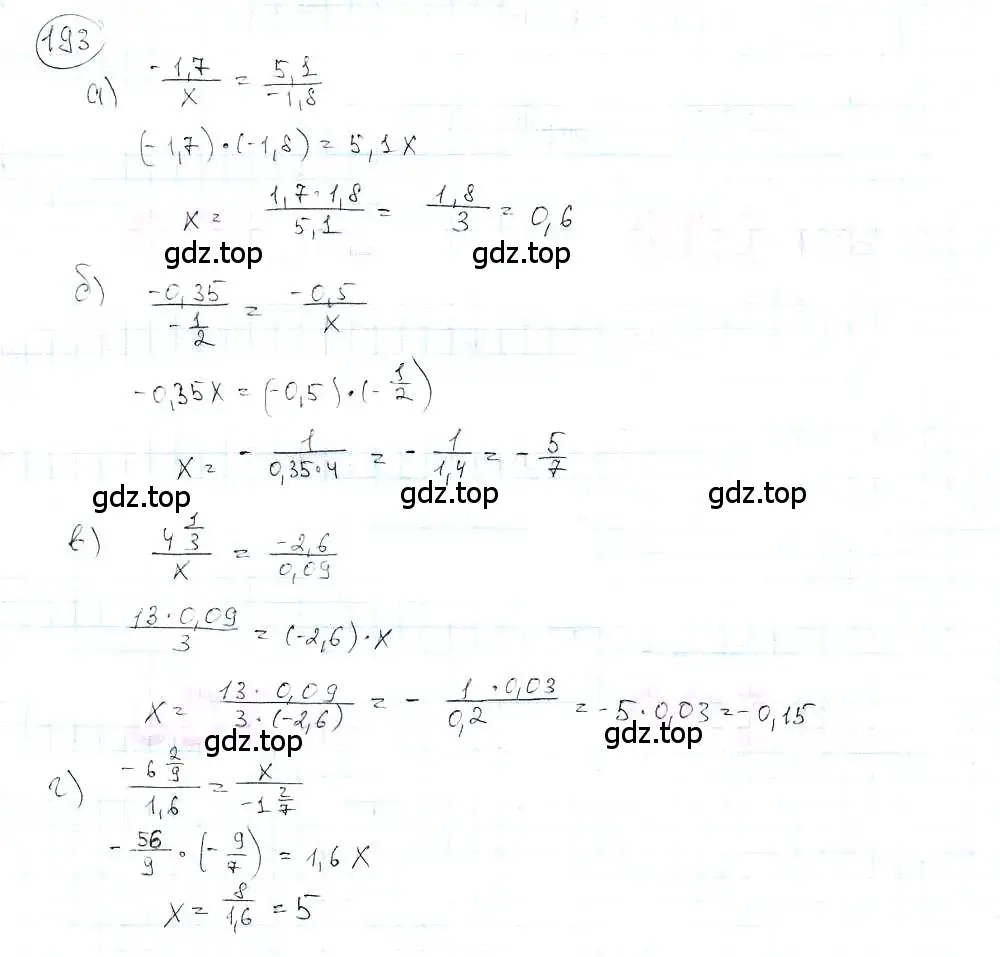 193
а) -1,7/x = 5,1/-1,8
(-1,7)·(-1,8) = 5,1x
x = 1,7·1,8/5,1 = 1,8/3 = 0,6
gdz.top gdz.top
б) -0,35/-1/2 = -0,5/x
-0,35x = (-0,5)·(-1/2)
x = - 1/0,35·4 = - 1/1,4 = - 5/7
gdz.top gdz.top gdz.top
в) 4 1/3/x = -2,6/0,09
13·0,09/3 = (-2,6)·x
x = 13·0,09/3·(-2,6) = - 1·0,03/0,2 = -5·0,03 = -0,15
gdz.top gdz.top
г) -6 2/9/1,6 = x/-1 2/7
- 56/9·(- 9/7) = 1,6x
x = 8/1,6 = 5
gdz.top gdz.top